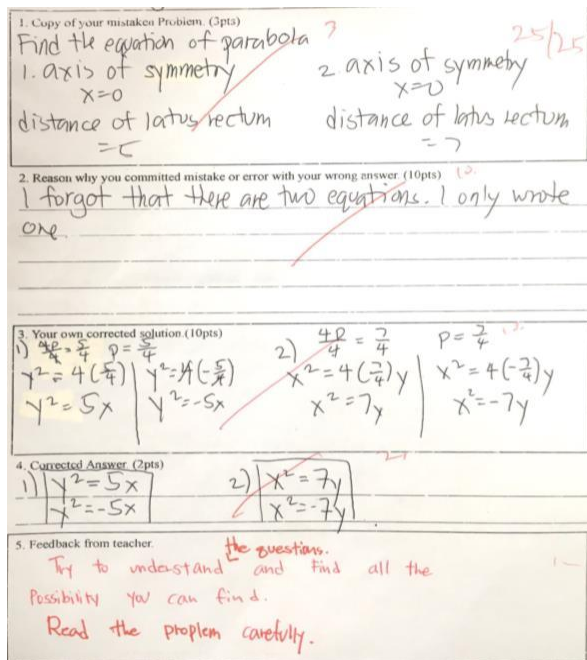 1. Copy of your mistaken Problem. (3pts) 3
25/25
Find the equation of parabola
1. axis of symmetry
x=0
distance of latus rectum
=5
2. axis of symmetry
x=0
distance of latus rectum
=7
2. Reason why you committed mistake or error with your wrong answer (10pts) 10.
I forgot that there are two equations. I only wrote
one.
3. Your own corrected solution.(10pts)
1) 4p/4 = 5/4 p = 5/4
y² = 4(5/4) y² = 4(-5/4)
y² = 5x y² = -5x
2) 4p/4 = 7/4 p = 7/4
x² = 4(7/4)y x² = 4(-7/4)y
x² = 7y x² = -7y
4. Corrected Answer (2pts)
1) y² = 5x
y² = -5x
2) x² = 7y
x² = -7y
5. Feedback from teacher.
the questions.
Try to understand and find all the
Possibility you can find.
Read the proplem carefully.